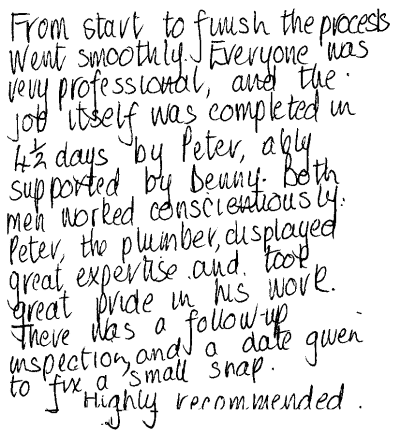 From start to finish the process
went smoothly. Everyone was
very professional, and the
job itself was completed in
4½ days by Peter, ably
supported by Denny. Both
men worked conscientiously.
Peter, the plumber, displayed
great expertise and took
great pride in his work.
There was a follow-up
inspection, and a date given
to fix a small snap.
Highly recommended.